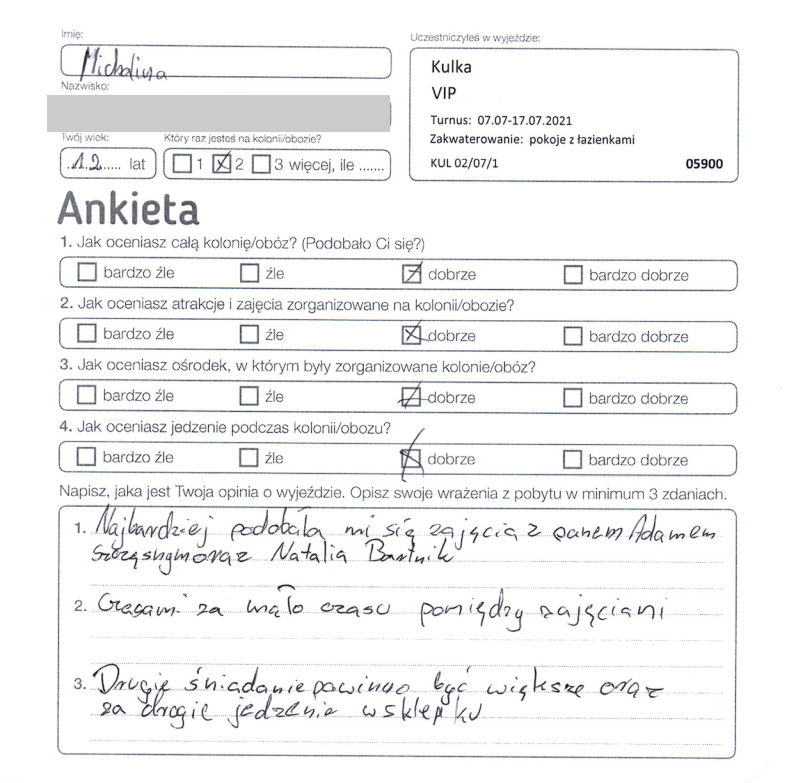 Imię:
Michalina
Nazwisko:
Twój wiek:
12 lat
Który raz jesteś na kolonii/obozie?
1 2 3 więcej, ile .......
Uczestniczyłeś w wyjeździe:
Kulka
VIP
Turnus: 07.07-17.07.2021
Zakwaterowanie: pokoje z łazienkami
KUL 02/07/1 05900
Ankieta
1. Jak oceniasz całą kolonię/obóz? (Podobało Ci się?)
bardzo źle źle dobrze bardzo dobrze
2. Jak oceniasz atrakcje i zajęcia zorganizowane na kolonii/obozie?
bardzo źle źle dobrze bardzo dobrze
3. Jak oceniasz ośrodek, w którym były zorganizowane kolonie/obóz?
bardzo źle źle dobrze bardzo dobrze
4. Jak oceniasz jedzenie podczas kolonii/obozu?
bardzo źle źle dobrze bardzo dobrze
Napisz, jaka jest Twoja opinia o wyjeździe. Opisz swoje wrażenia z pobytu w minimum 3 zdaniach.
1. Najbardziej podobała mi się zajęcia z panem Adamem
oraz Natalia
2. Czasami za mało czasu pomiędzy zajęciami
3. Drugie śniadanie powinno być większe oraz
za drogie jedzenie w sklepiku